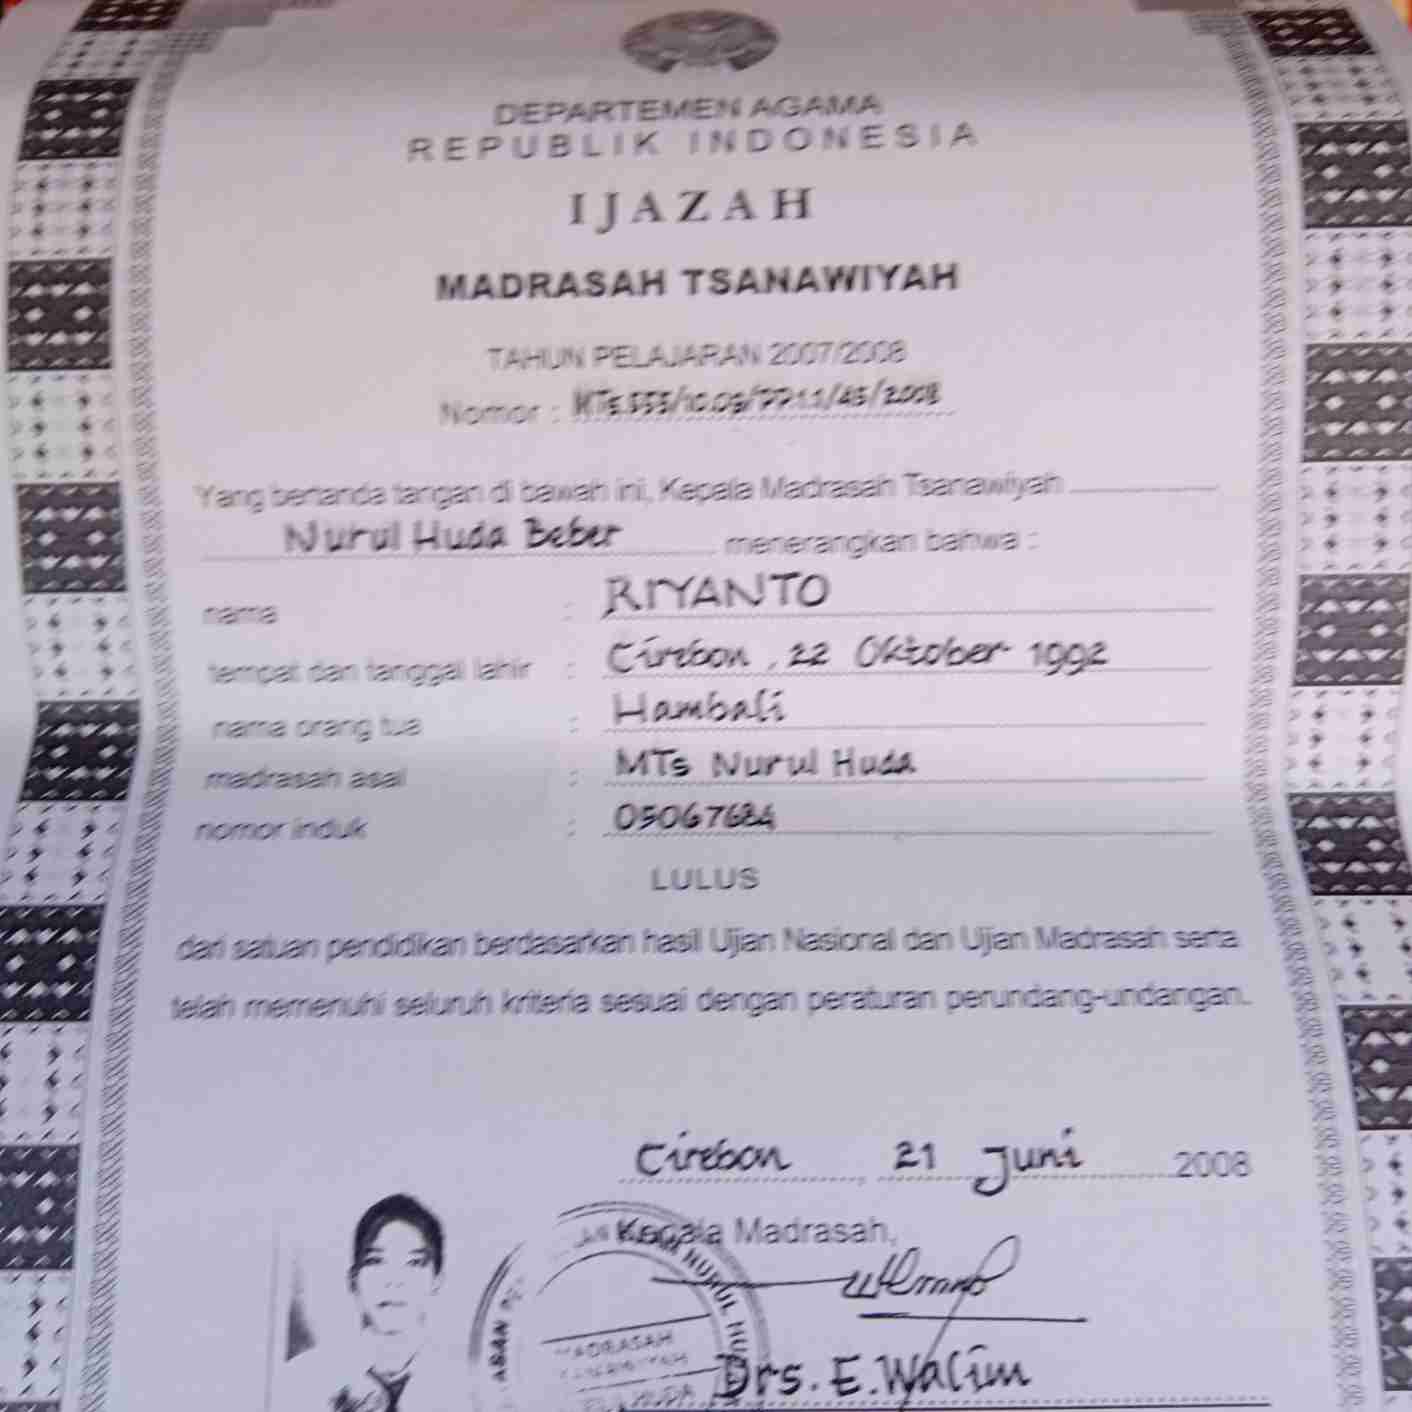 DEPARTEMEN AGAMA
REPUBLIK INDONESIA
IJAZAH
MADRASAH TSANAWIYAH
TAHUN PELAJARAN 2007/2008
Nomor : MTs.555/10.09/PP.1.1/45/2008
Yang bertanda tangan di bawah ini, Kepala Madrasah Tsanawiyah
Nurul Huda Beber menerangkan bahwa :
nama : RIYANTO
tempat dan tanggal lahir : Cirebon, 22 Oktober 1992
nama orang tua : Hambali
madrasah asal : MTs Nurul Huda
nomor induk : 05067684
LULUS
dari satuan pendidikan berdasarkan hasil Ujian Nasional dan Ujian Madrasah serta
telah memenuhi seluruh kriteria sesuai dengan peraturan perundang-undangan.
Cirebon, 21 Juni 2008
Kepala Madrasah,
NURUL HU
MADRASAH
HUDA
Drs. E. Walim